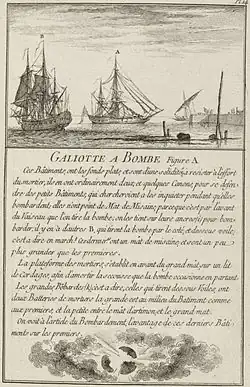 Pl. 
A
GALIOTTE A BOMBE Figure A
Ces Bâtiments, ont les fonds plats, et sont d'une solidité à resister à l'effort
du mortier, ils en ont ordinairement deux, et quelques Canons, pour se défen
dre des petits Bâtiments, qui chercheroient à les inquieter pendant qu'elles
bombardent; elles n'ont point de Mât de Misaine, parceque c'est par l'avant
du Vaisseau que l'on tire la bombe, on les tient sur leurs ancres pour bom-
barder; il y en a d'autres B, qui tirent la bombe par le coté, et dessous voile,
c'est a dire en march. Ces derniers ont un mât de misaine, et sont un peu
plus grandes que les premieres.
La plateforme des mortiers, s'établit en avant du grand mât, sur un lit
de Cordages, afin d'amortir la secousse que la bombe occasionne en partant.
Les grandes Bombardes (c'est a dire, celles qui tirent dessous Voiles, ont
deux Batteries de mortiers la grande est au milieu du Bâtiment comme
aux premieres, et la petite entre le mât d'artimon, et le grand mat.
On voit à l'article du Bombardement, l'avantage de ces derniers Bâti-
ments sur les premiers.